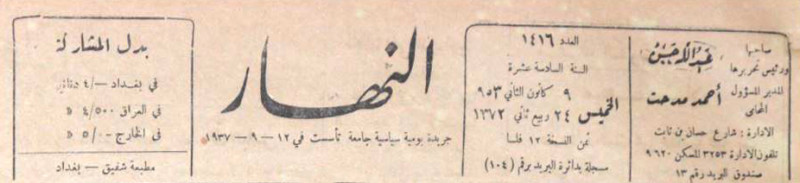 صاحبها
ورئيس تحريرها
عبدالله حسن
المدير المسؤول
المحامي
أحمد مدحت
الادارة : شارع حسان بن ثابت
تلفون الادارة ٣٢٥٣ المسكن ٩٦٢٠
صندوق البريد رقم ١٣
العدد ١٤١٦
السنة السادسة عشرة
الخميس
٩ كانون الثاني ٩٥٣
٢٤ ربيع ثاني ١٣٧٢
ثمن النسخة ١٢ فلسا
مسجلة بدائرة البريد برقم (١٠٤)
النهار
جريدة يومية سياسية جامعة تأسست في ١٢ — ٩ — ١٩٣٧
بدل المشاركة
في بغداد —/٤ دنانير
في العراق ٤/٥٠٠ »
في الخارج ٥/٠٠ »
مطبعة شفيق — بغداد